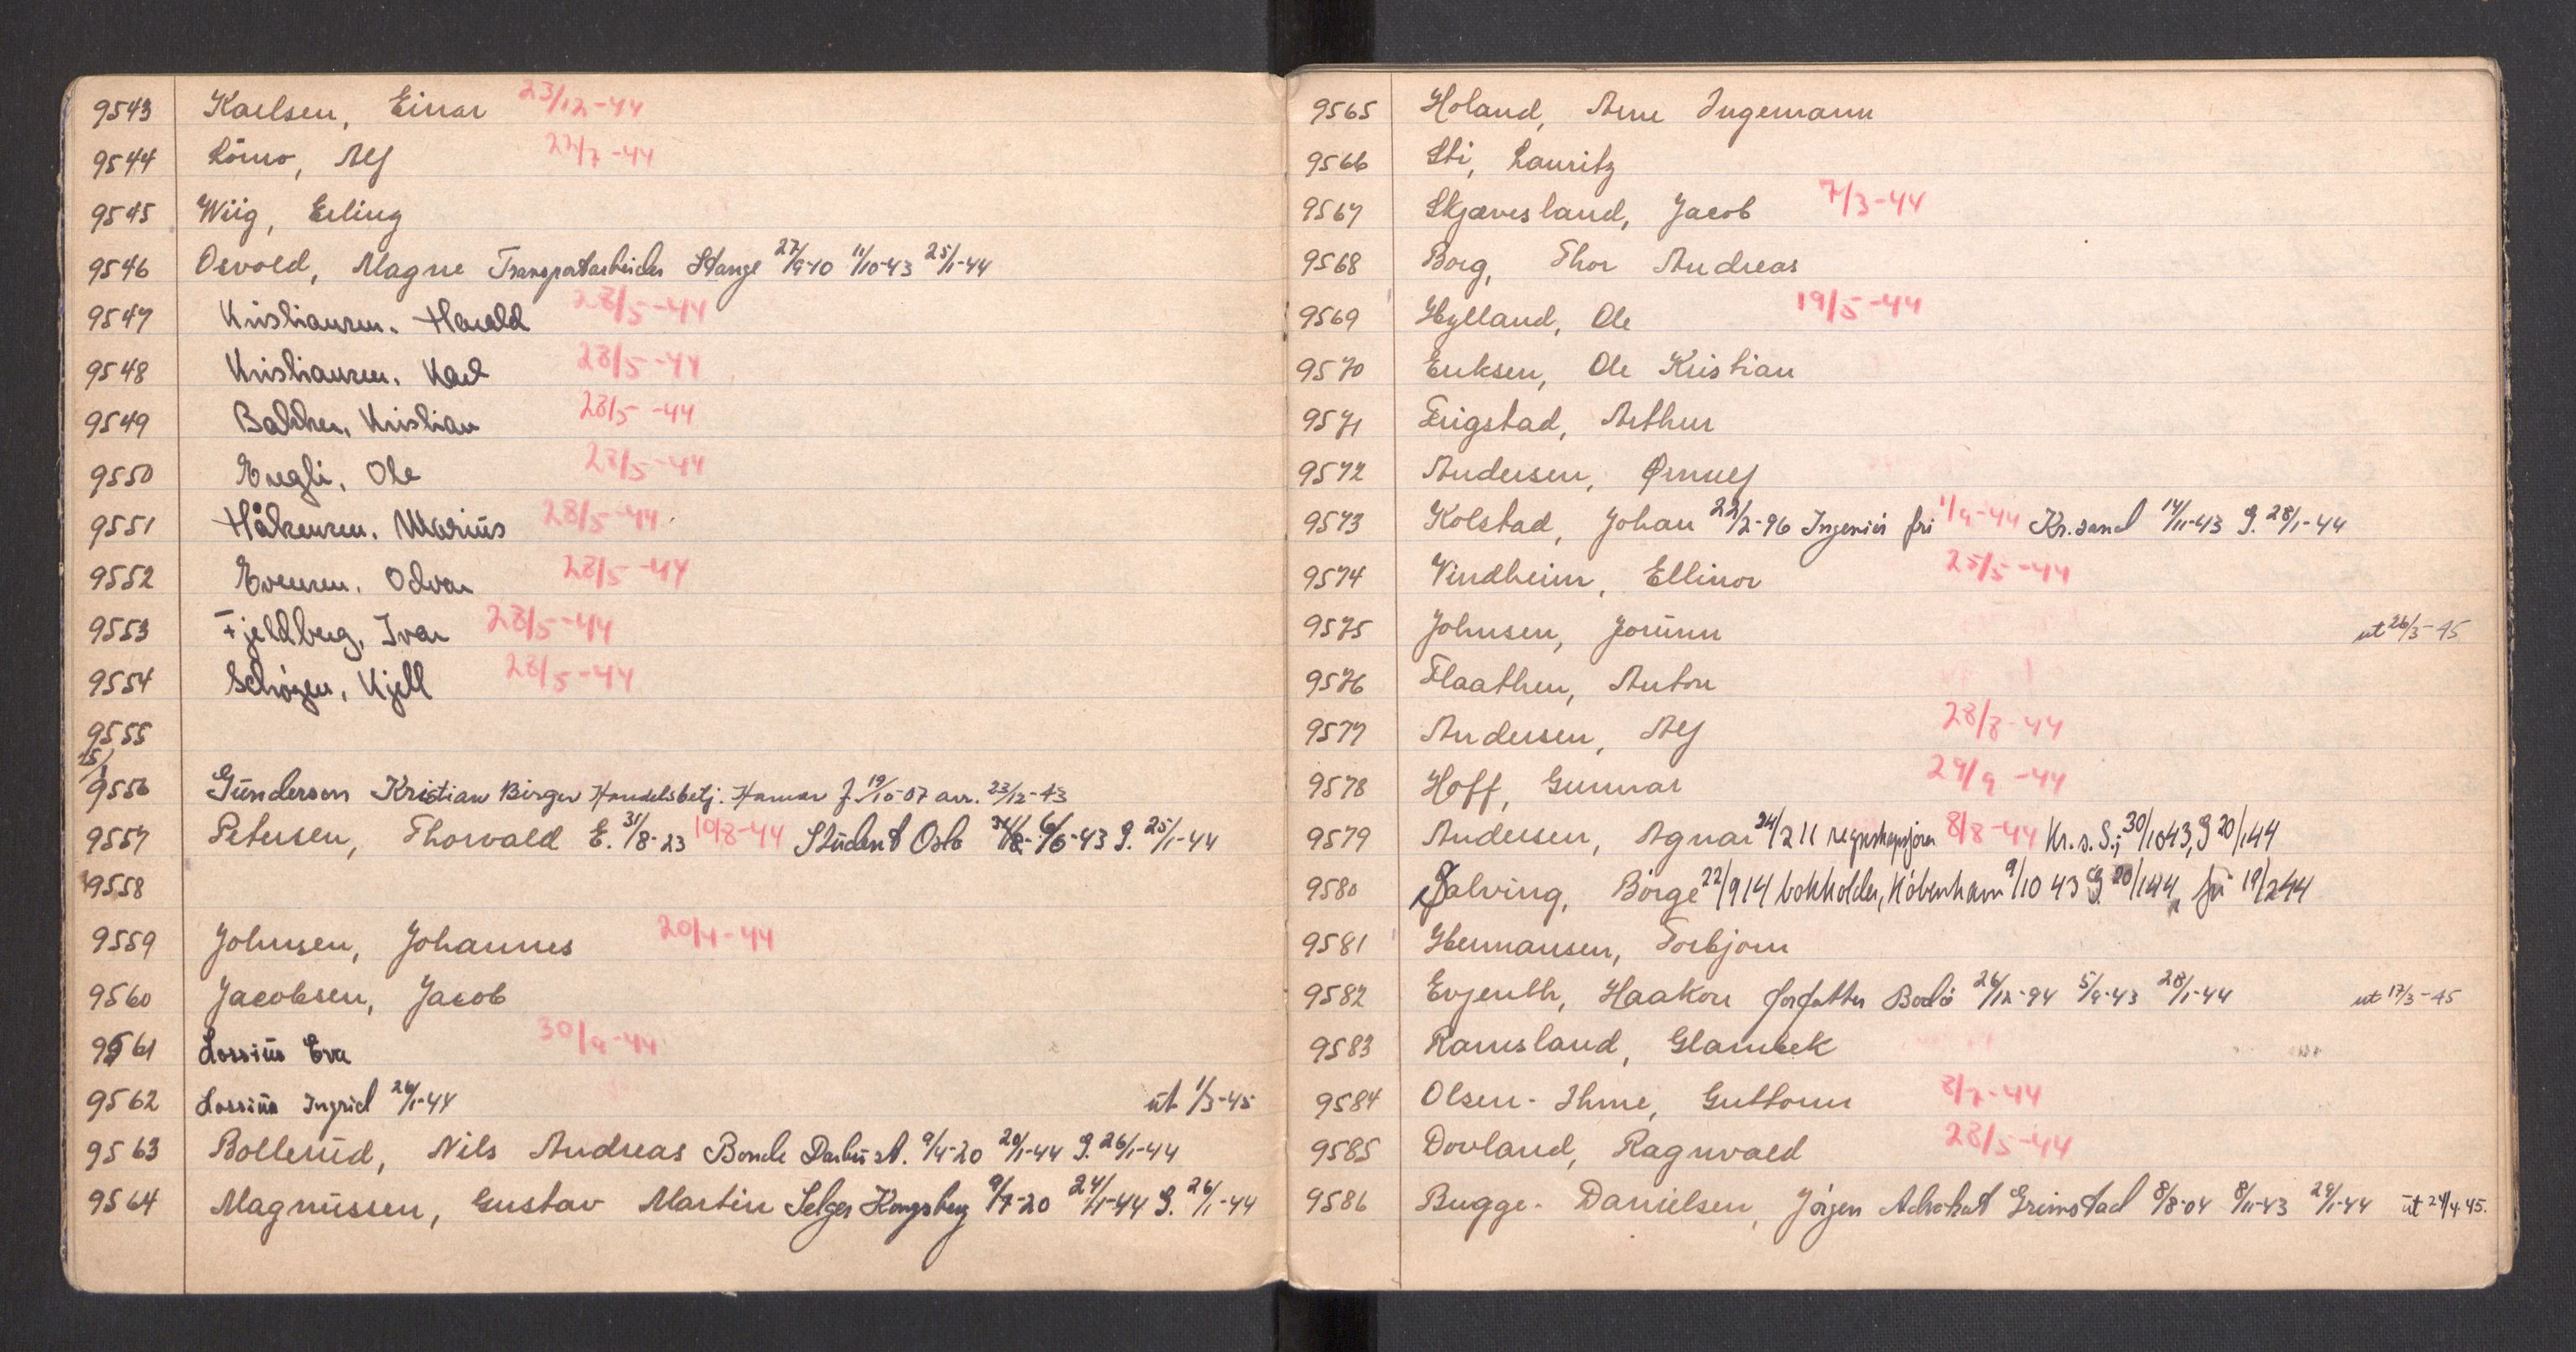 9543 Karlsen, Einar 23/12-44
9544 Lömo, Alf 22/7-44
9545 Wiig, Erling
9546 Osvold, Magne Transportarbeider Stange 27/9-10 11/10-43 25/1-44
9547 Kristiansen. Harald 28/5-44
9548 Kristiansen. Karl 28/5-44
9549 Bakken, Kristian 28/5-44
9550 Engli, Ole 28/5-44
9551 Håkensen. Marius 28/5-44
9552 Evensen. Odvar 28/5-44
9553 Fjeldberg, Ivar 28/5-44
9554 Schøyen, Kjell 28/5-44
9555
9556 Gunderson Kristian Birger Handelsbetj. Hamar f. 19/10-07 arr. 23/12-43
9557 Petersen, Thorvald E. 31/8-23 10/8-44 Student Oslo 6/6-43 G. 25/1-44
9558
9559 Johnsen, Johannes 20/4-44
9560 Jacobsen, Jacob
9561 Lossius Eva 30/9-44
9562 Lossius Ingrid 26/1-44 ut 1/3-45
9563 Bollerud, Nils Andreas Bonde 9/4-20 20/1-44 G. 26/1-44
9564 Magnussen, Gustav Martin Selger Kongsberg 9/7-20 24/1-44 G. 26/1-44
9565 Holand, Arne Ingemann
9566 Sti, Lauritz
9567 Skjævesland, Jacob 7/3-44
9568 Borg, Thor Andreas
9569 Hylland, Ole 19/5-44
9570 Eriksen, Ole Kristian
9571 Frigstad, Arthur
9572 Andersen, Ørnulf
9573 Kolstad, Johan 22/2-96 Ingeniör fri 1/9-44 Kr.sand 14/11-43 G. 28/1-44
9574 Vindheim, Ellinor 25/5-44
9575 Johnsen, Jorunn ut 26/3-45
9576 Flaathen, Anton
9577 Andersen, Alf 28/8-44
9578 Hoff, Gunnar 29/9-44
9579 Andersen, Agnar 24/2 11 regnskapsfører 8/8-44 Kr. s. S.; 30/10 43, G 20/1 44
9580 Salving, Börge 22/9 14 bokholder, Köbenhavn 9/10 43 G 20/1 44, fri 19/2 44
9581 Hermansen, Torbjorn
9582 Evjenth, Haakon forfatter Bodö 26/12-94 5/9-43 28/1-44 ut 17/3-45
9583 Ramsland, Glambek
9584 Olsen-Ihme, Guttorm 8/7-44
9585 Dovland, Ragnvald 28/5-44
9586 Bugge-Danielsen, Jörgen Advokat Grimstad 8/8-04 8/11-43 29/1-44 ut 24/4 45.